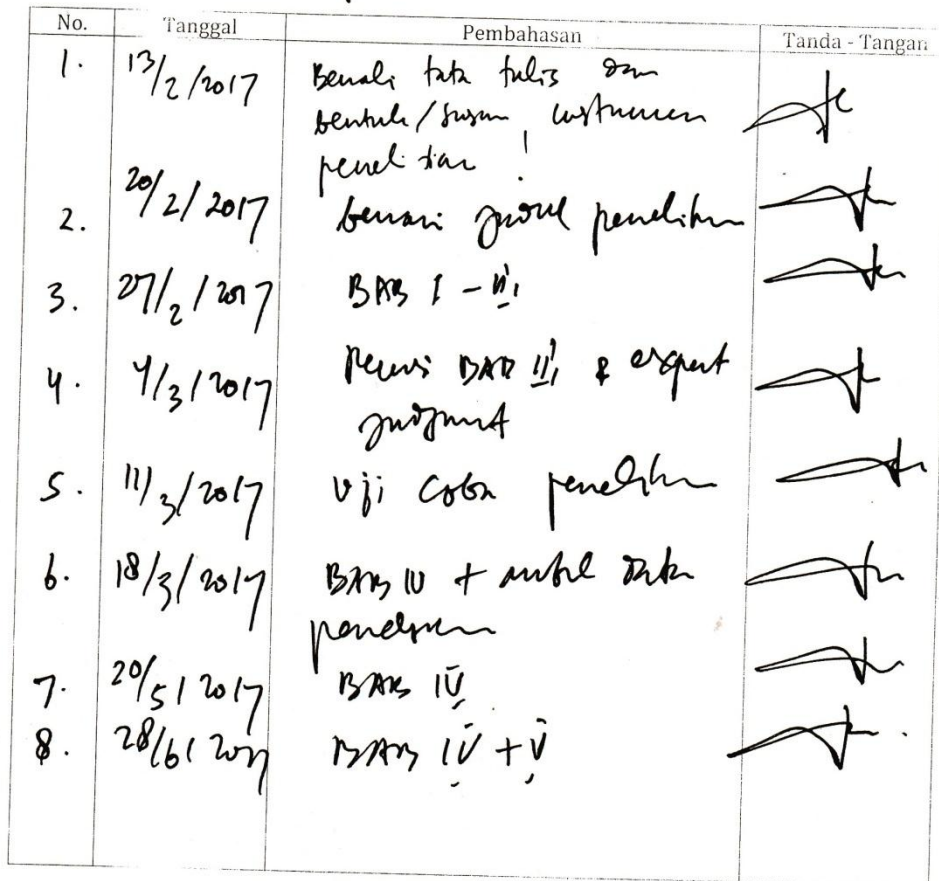 No. Tanggal Pembahasan Tanda - Tangan
1. 13/2/2017 Benahi tata tulis dan
bentuk/susun instrumen
penelitian !
2. 20/2/2017 benahi judul penelitian
3. 27/2/2017 BAB I - III
4. 4/3/2017 Revisi BAB III & expert
judgment
5. 11/3/2017 Uji coba penelitian
6. 18/3/2017 BAB IV + ambil data
7. 20/5/2017 BAB IV
8. 28/6/2017 BAB IV + V